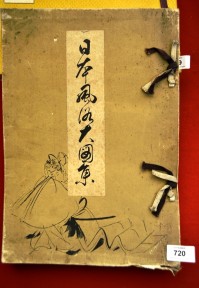 日本風俗大図集
720